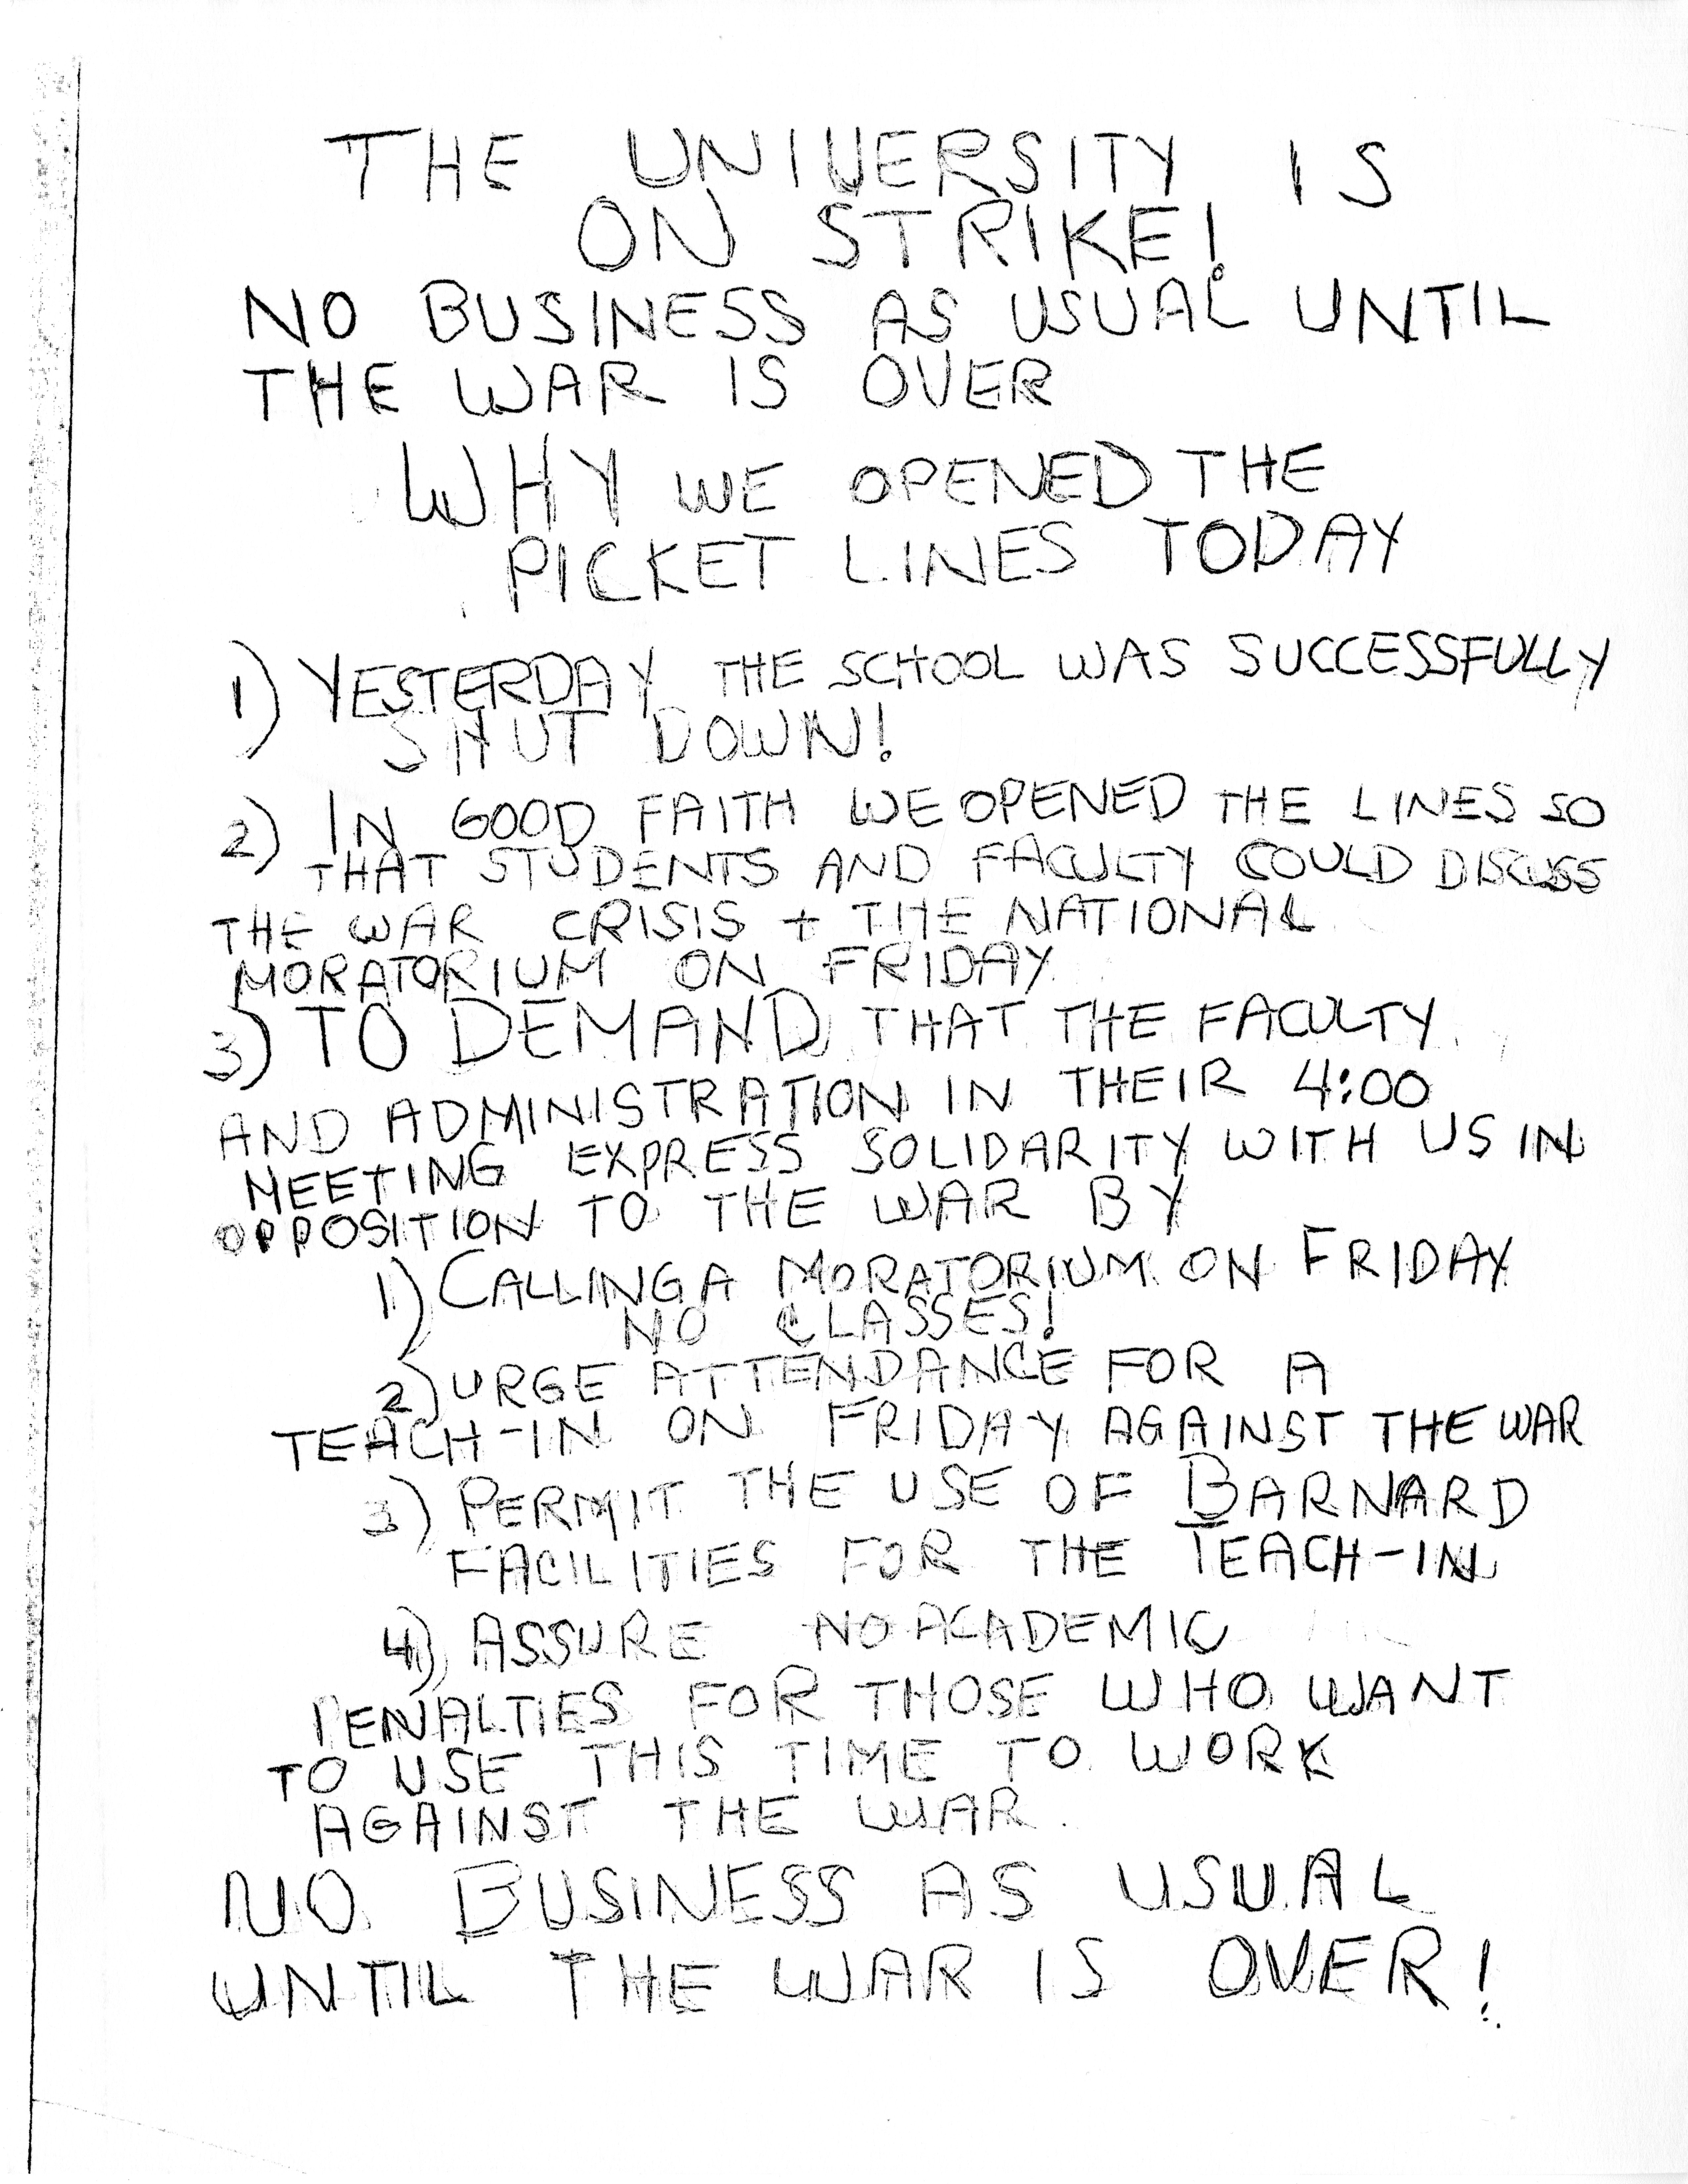 THE UNIVERSITY IS
ON STRIKE!
NO BUSINESS AS USUAL UNTIL
THE WAR IS OVER
WHY WE OPENED THE
PICKET LINES TODAY
1) YESTERDAY THE SCHOOL WAS SUCCESSFULLY
SHUT DOWN!
2) IN GOOD FAITH WE OPENED THE LINES SO
THAT STUDENTS AND FACULTY COULD DISCUSS
THE WAR CRISIS + THE NATIONAL
MORATORIUM ON FRIDAY
3) TO DEMAND THAT THE FACULTY
AND ADMINISTRATION IN THEIR 4:00
MEETING EXPRESS SOLIDARITY WITH US IN
OPPOSITION TO THE WAR BY
1) CALLING A MORATORIUM ON FRIDAY
NO CLASSES!
2) URGE ATTENDANCE FOR A
TEACH-IN ON FRIDAY AGAINST THE WAR
3) PERMIT THE USE OF BARNARD
FACILITIES FOR THE TEACH-IN
4) ASSURE NO ACADEMIC
PENALTIES FOR THOSE WHO WANT
TO USE THIS TIME TO WORK
AGAINST THE WAR.
NO BUSINESS AS USUAL
UNTIL THE WAR IS OVER!